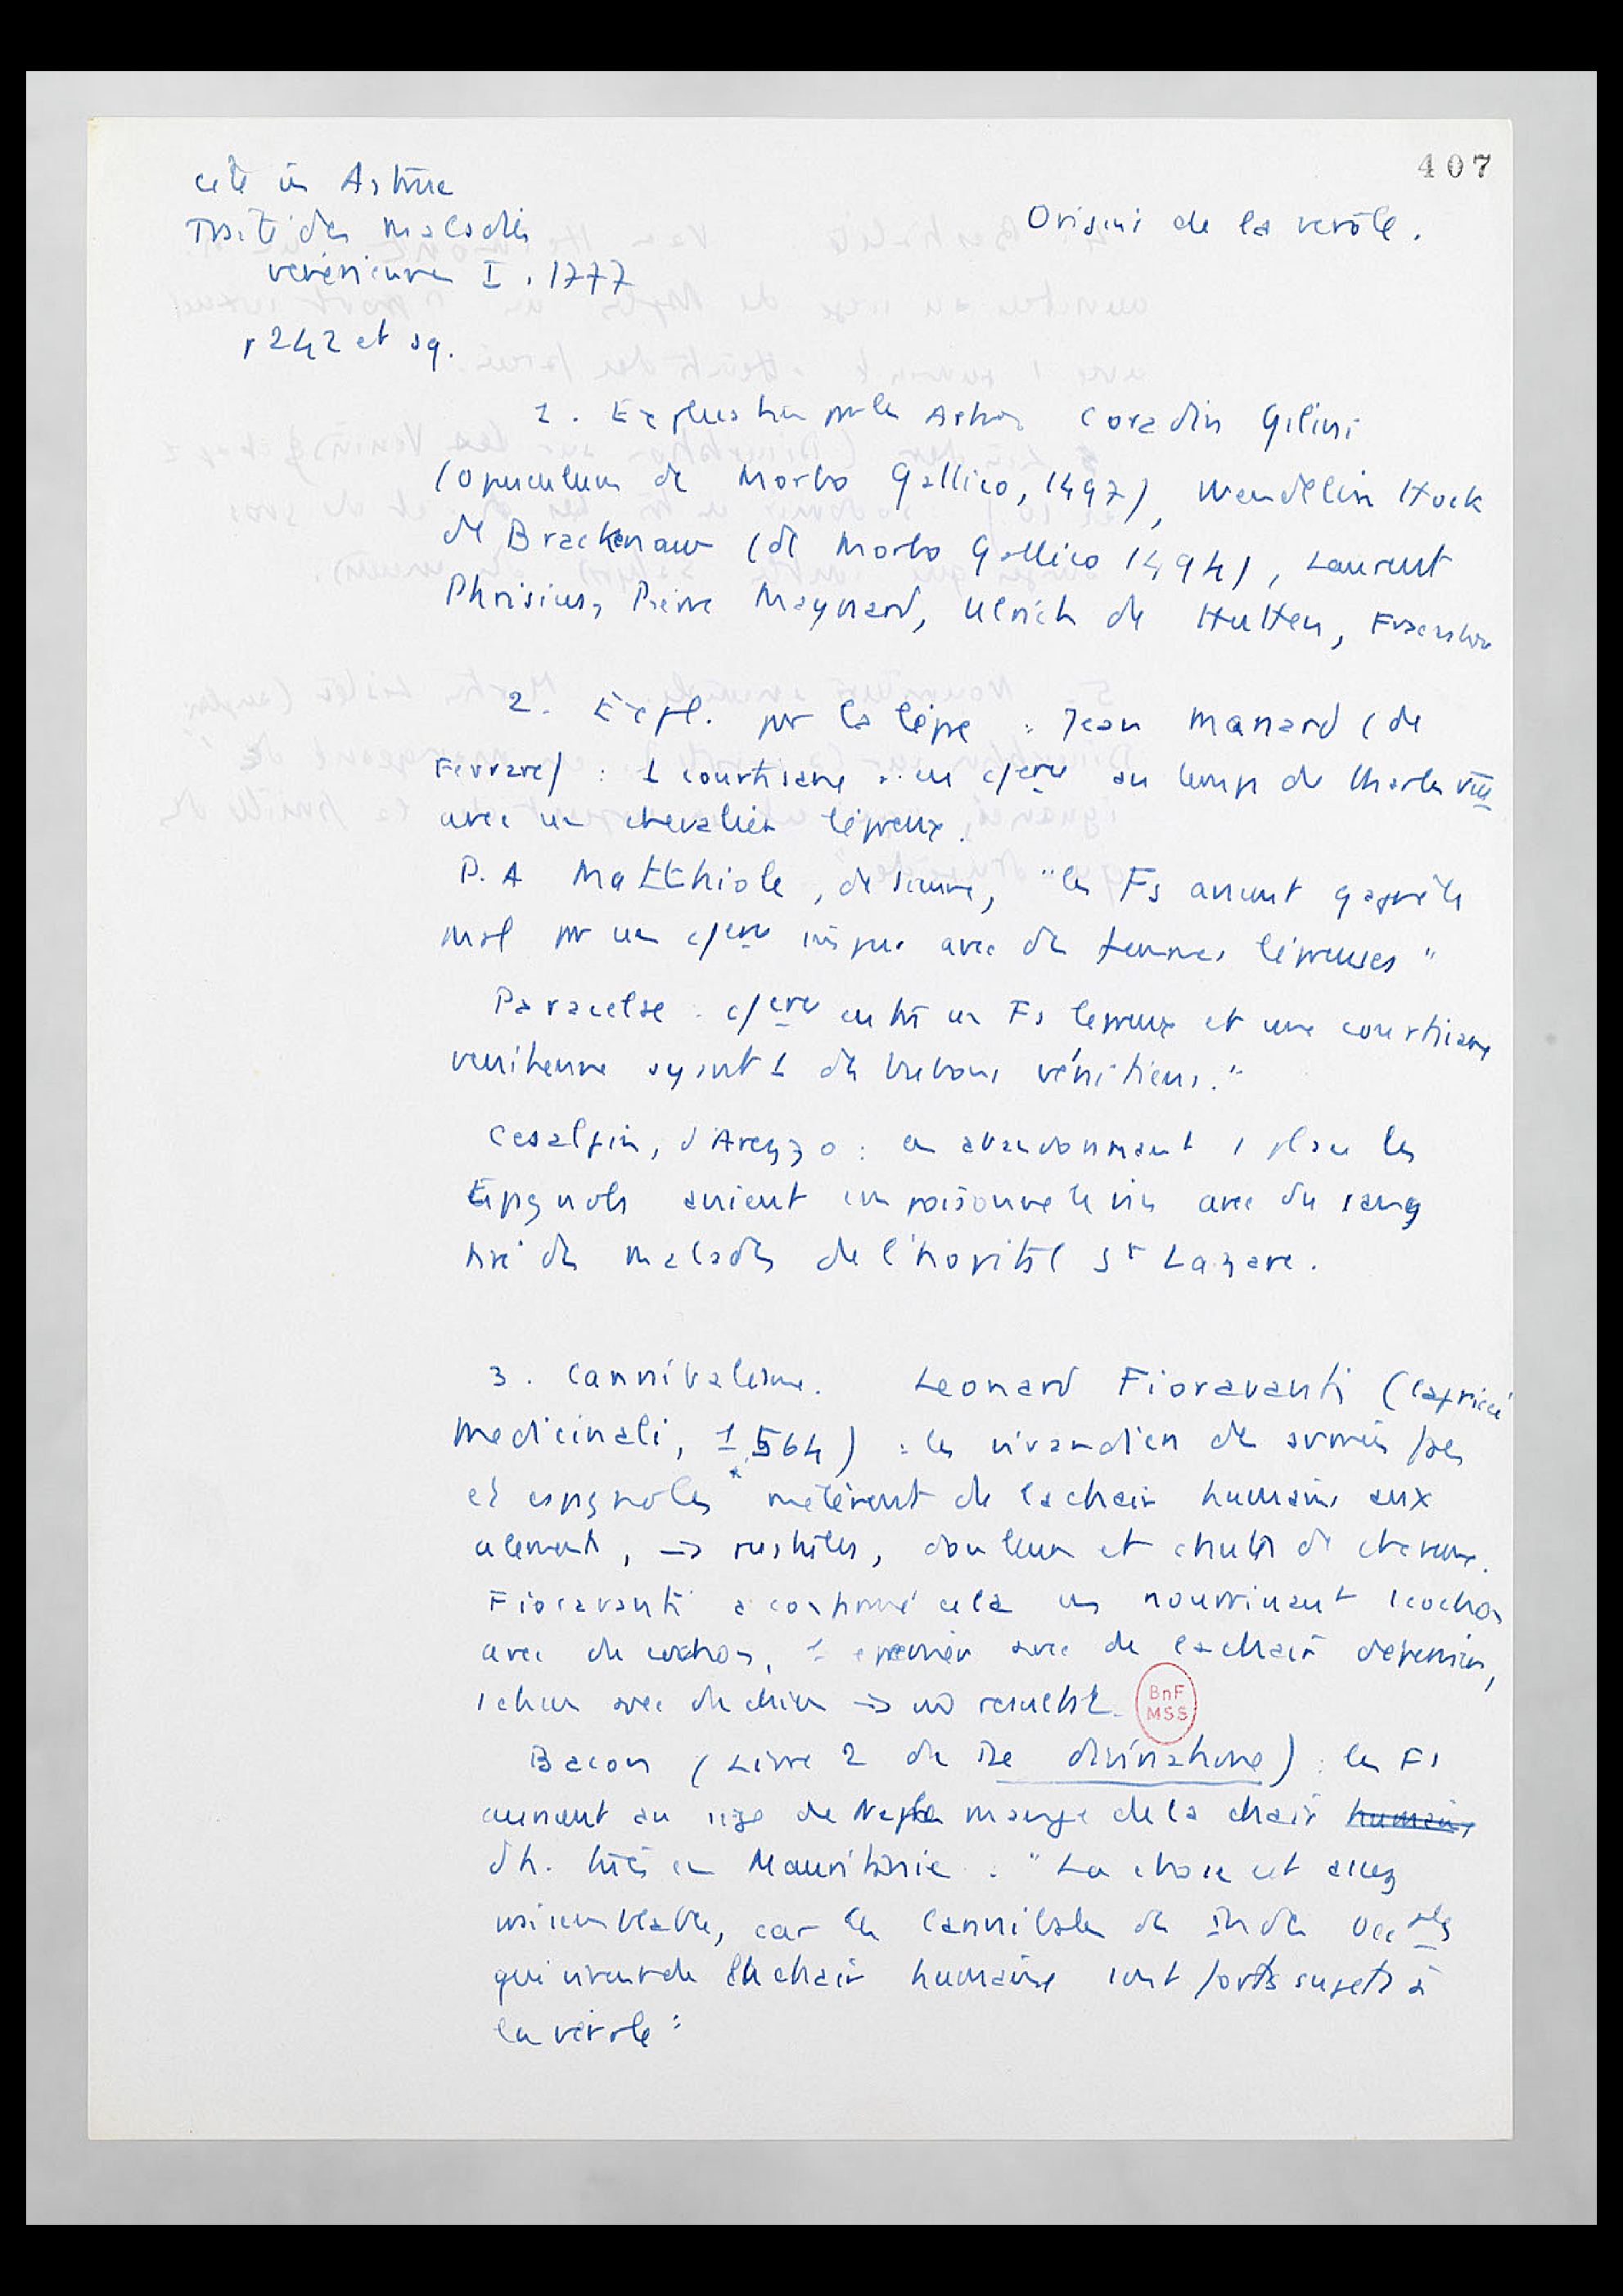 407
cité in Astruc
Traité des Maladies
vénériennes I. 1777
p 242 et sq.
Origine de la vérole.
1. Explication par les Astres Coradin Gilini
(opusculum de Morbo Gallico, 1497), Wendelin Hock
de Brackenaw (de Morbo Gallico 1494), Laurent
Phrisius, Pierre Maynard, Ulrich de Hutten, Fracastor
2. Expl. par la lèpre : Jean Manard (de
Ferrare) : 1 courtisane a eu cerce au temps de Charles VIII
avec un chevalier lépreux.
P. A Matthiole, de Sienne, "les Fs avaient gagné le
mal par un cerce impur avec des femmes lépreuses"
Paracelse : cerce entre un Fs lépreux et une courtisane
vénitienne ayant 1 des bubons vénitiens."
Cesalpin, d'Arezzo : en abandonnant 1 place les
Espagnols avaient empoisonné le vin avec du sang
tiré des malades de l'hopital St Lazare.
3. Cannibalisme. Leonard Fioravanti (Capricci
medicinali, 1564) : les vivandiers des armées fses
et espagnoles mêlèrent de la chair humaine aux
aliments, → pustules, douleurs et chute de cheveux.
Fioravanti a confirmé cela en nourrissant 1 cochon
avec du cochon, 1 épervier avec de la chair d'épervier,
1 chien avec du chien → résultat.
BnF
MSS
Bacon (Livre 2 du De divinatione) : les Fs
auraient au siège de Naples mangé de la chair humaine
d'h. tués en Mauritanie. "La chose est assez
vraisemblable, car les Cannibales des Indes Occales
qui vivent de chair humaine sont forts sujets à
la vérole"